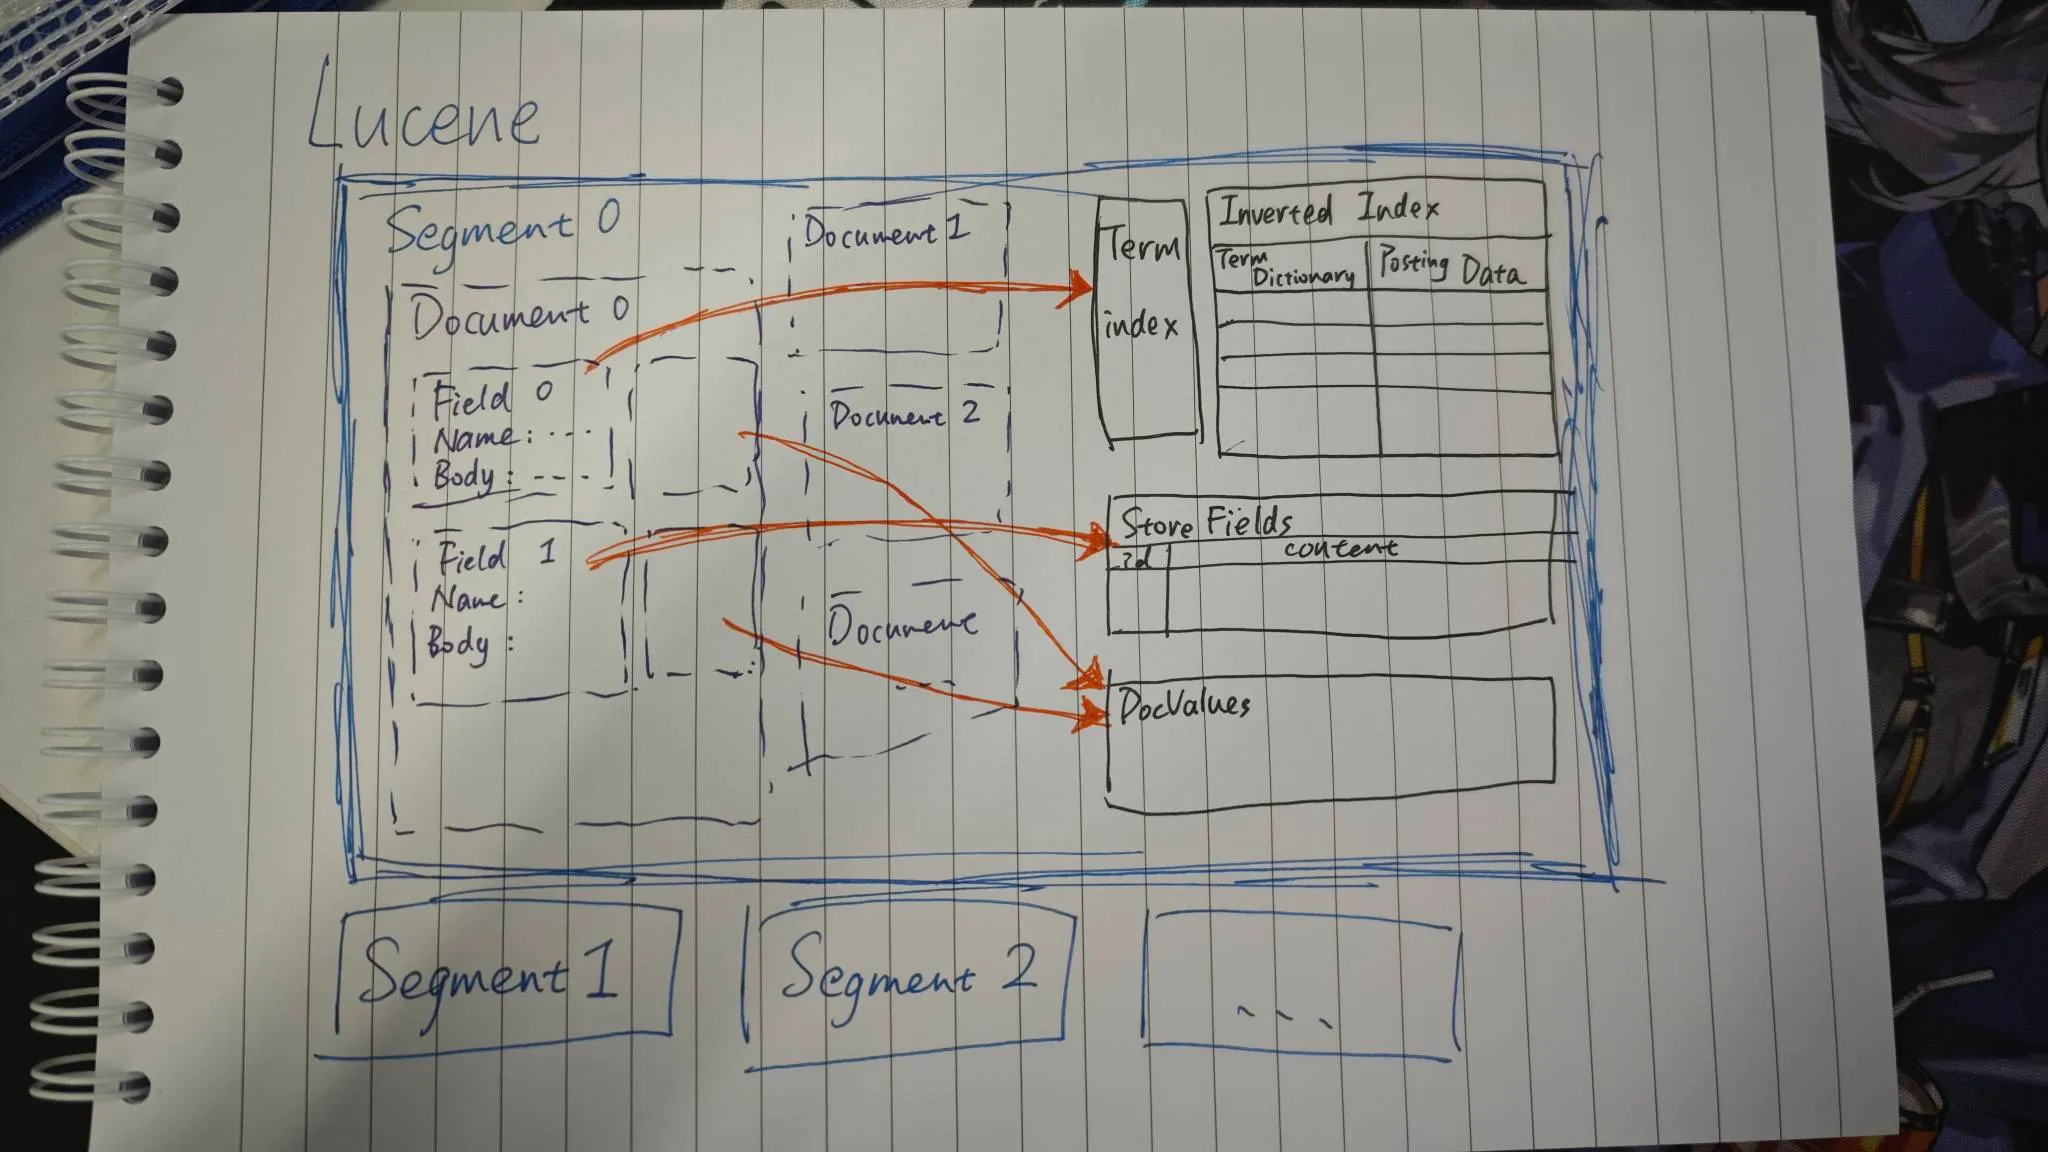 Lucene
Segment 0
Document 0
Field 0
Name: ...
Body: ----
Field 1
Name:
Body:
Document 1
Document 2
Document
Term
index
Inverted Index
Term
Dictionary
Posting Data
Store Fields
id
content
DocValues
Segment 1
Segment 2
...